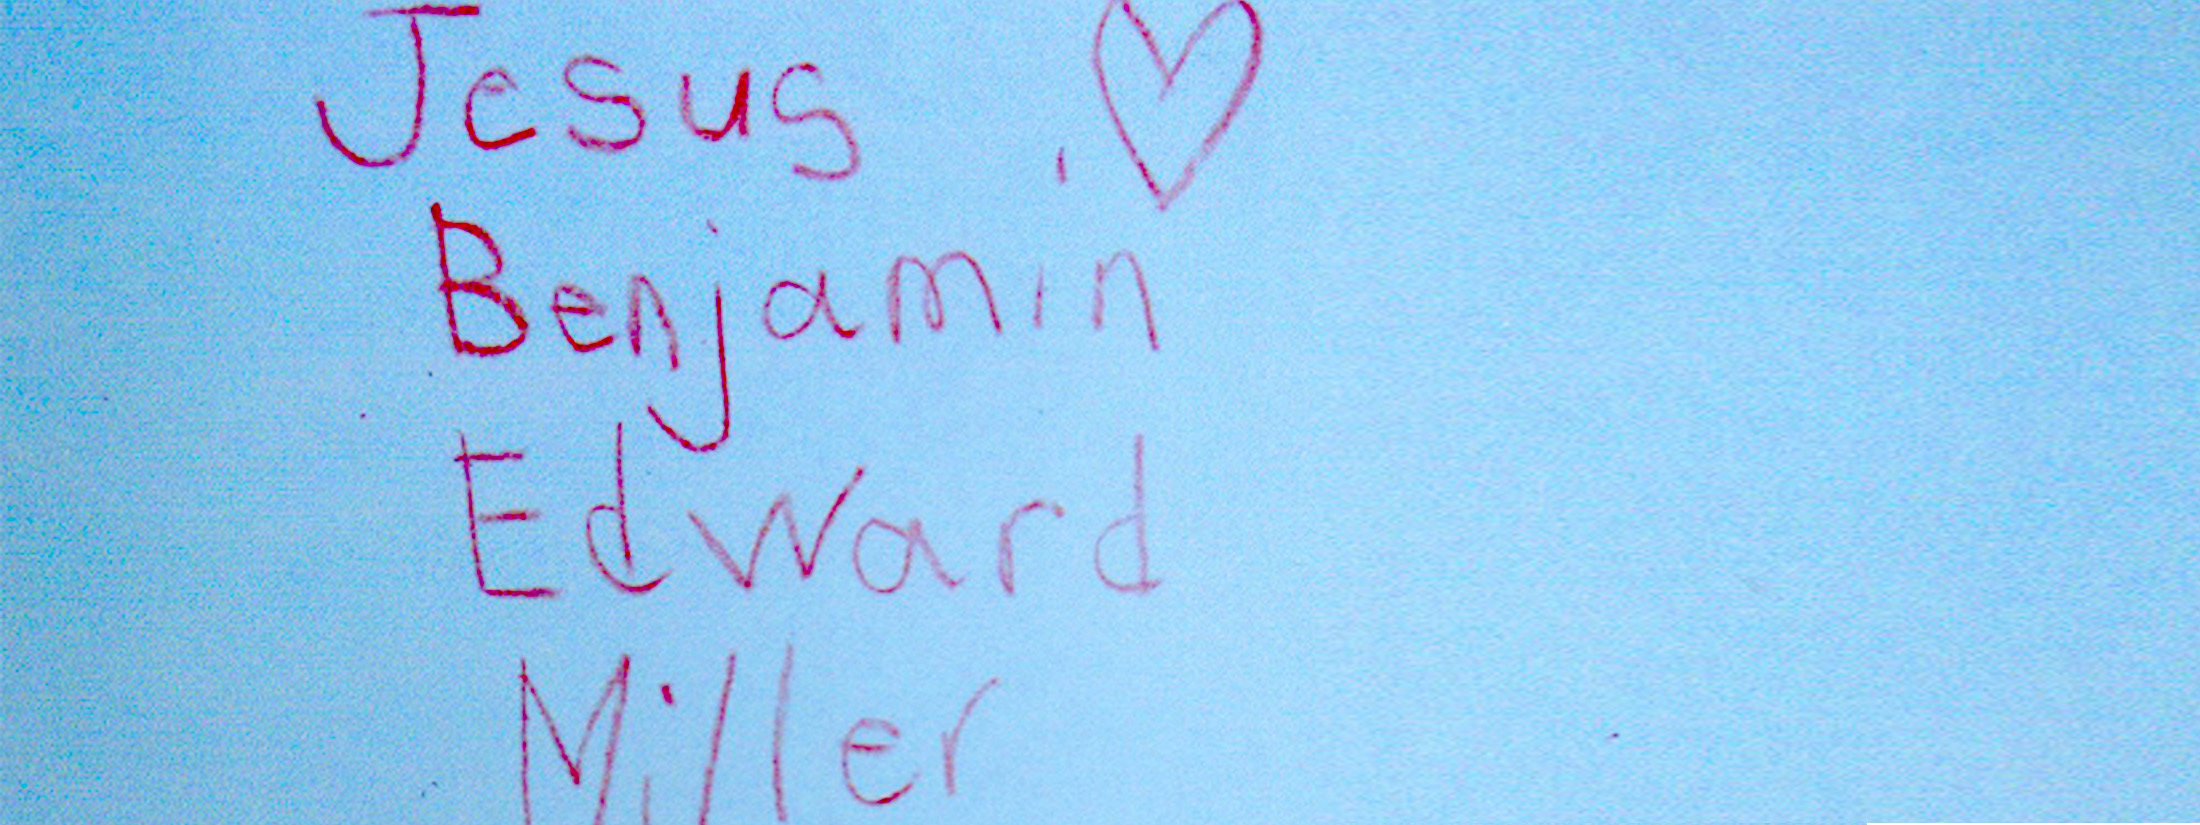 Jesus
Benjamin
Edward
Miller